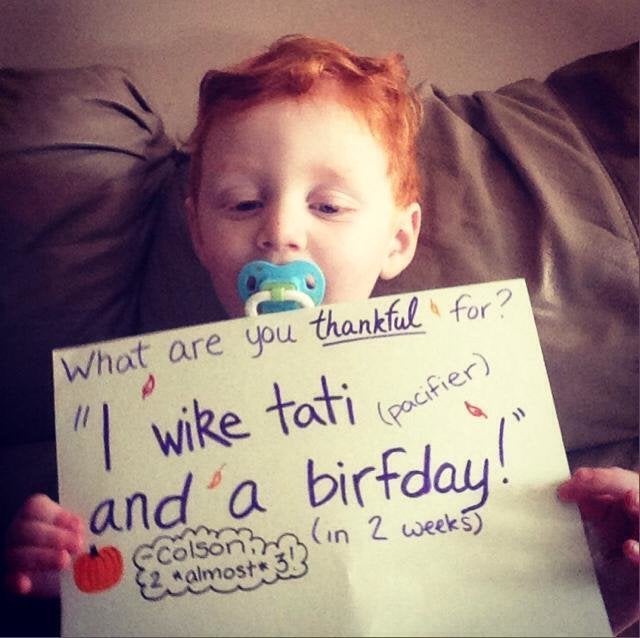 What are you thankful for?
"I wike tati (pacifier)
and a birfday!"
(in 2 weeks)
-Colson,
2 *almost* 3!